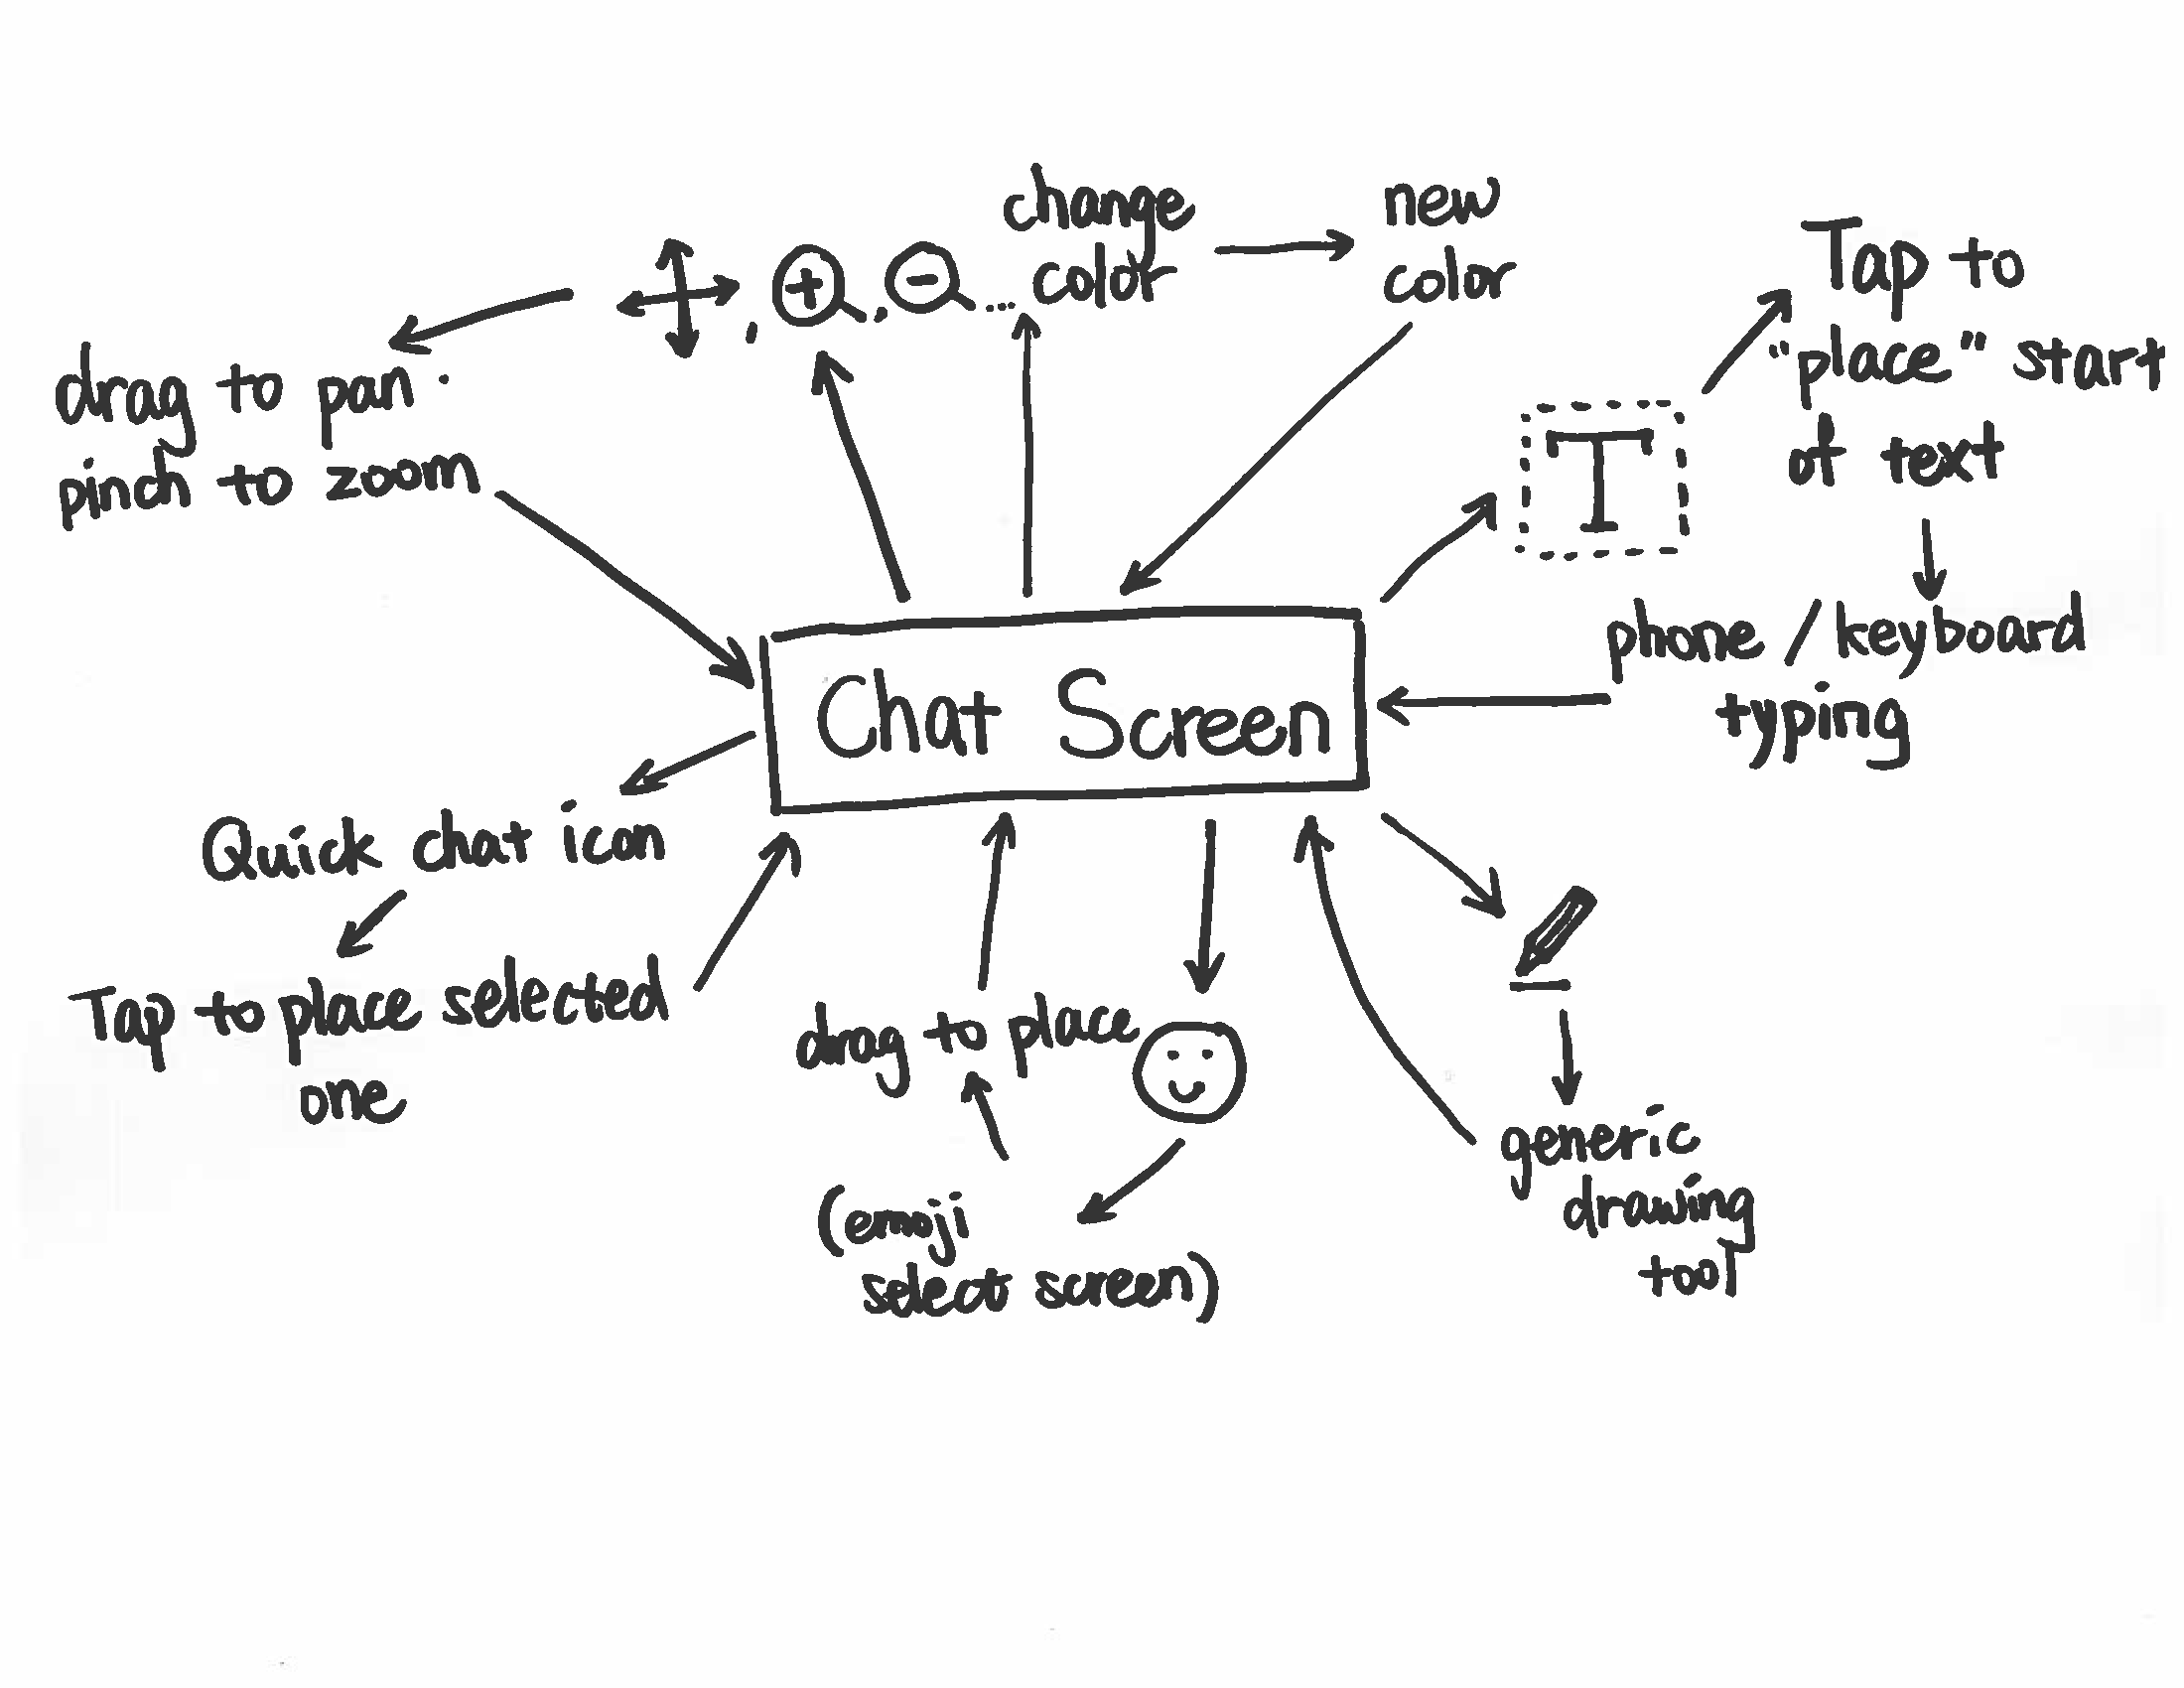 change
color
new
color
Tap to
"place" start
of text
drag to pan
pinch to zoom
T
phone / keyboard
typing
Chat Screen
Quick chat icon
Tap to place selected
one
drag to place
(emoji
select screen)
generic
drawing
tool